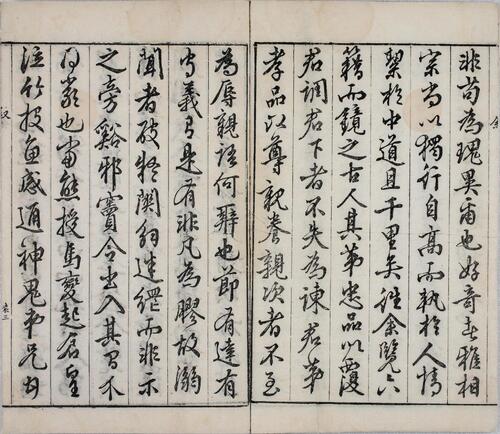 非苟為瑰異爾也好奇者雅相
宗尚以獨行自高而執於人情
絜於中道且千里矣往余覽六
籍而鏡之古人其第忠品以覆
君調君下者不失為諫君第
孝品以尊親養親次者不至
為辱親語何辨也節有達有
守義有是有非凡為膠故溺
聞者破拘關解迷纏而非示
之旁谿邪竇令出入其間不
可歎也當熊授馬變起倉皇
泣竹投魚感通神鬼弟兄